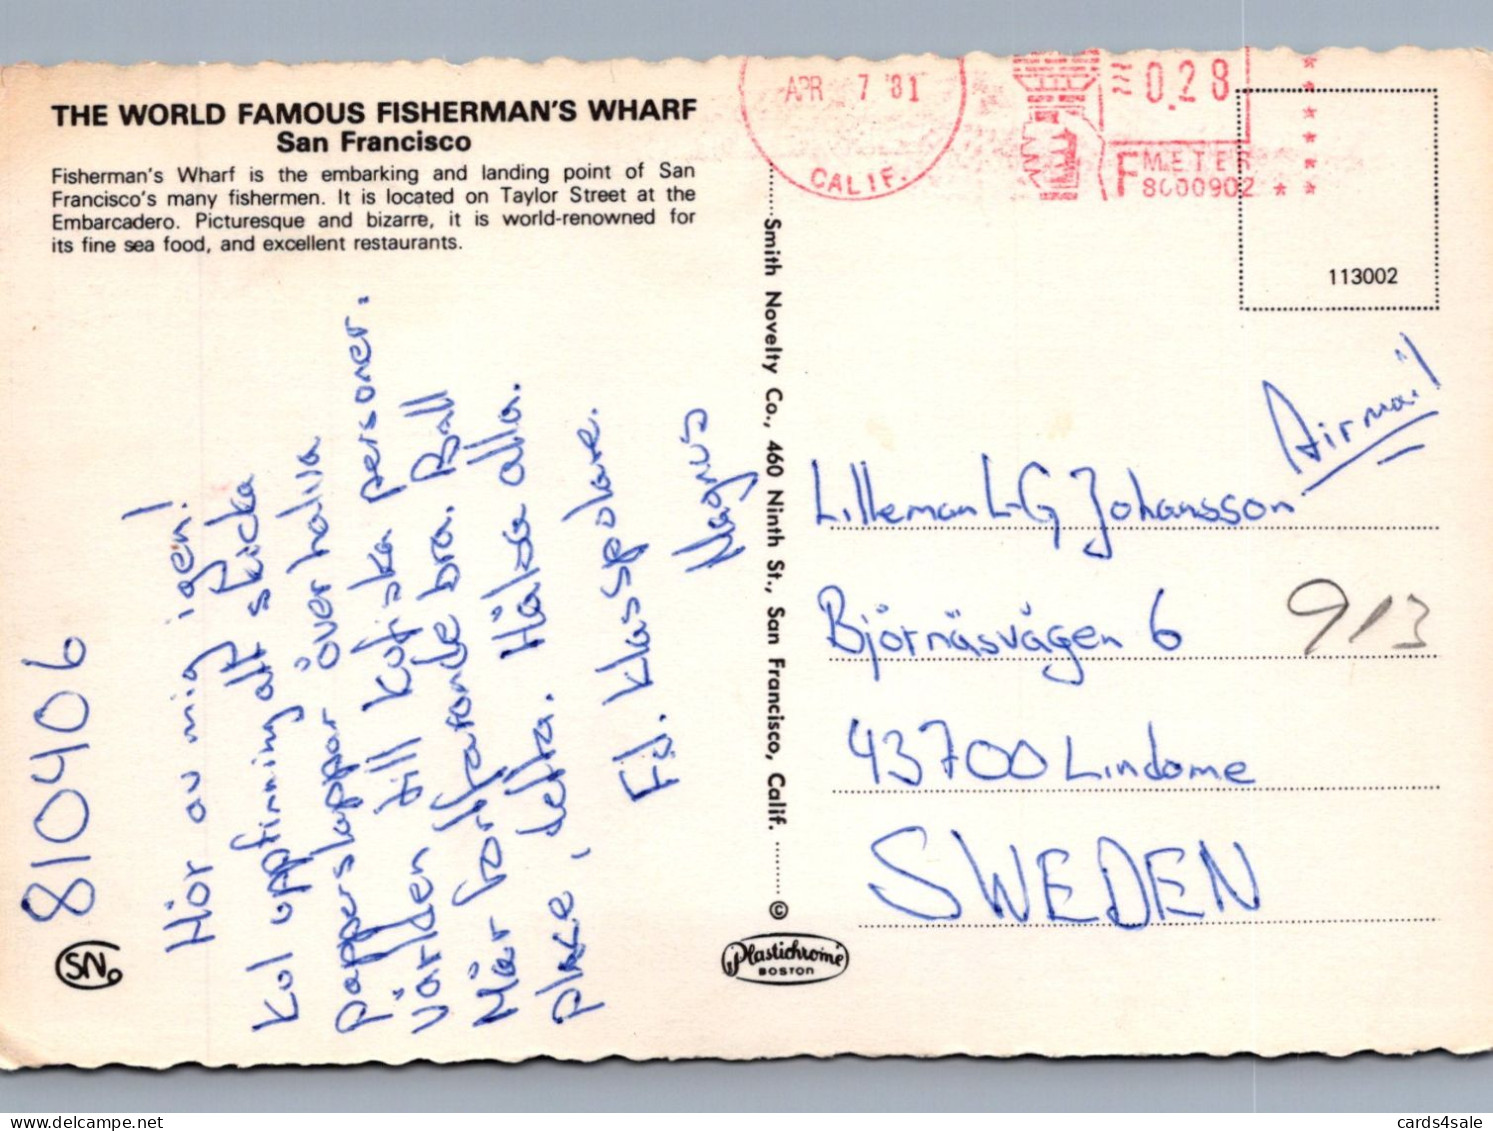 THE WORLD FAMOUS FISHERMAN'S WHARF
San Francisco
Fisherman's Wharf is the embarking and landing point of San
Francisco's many fishermen. It is located on Taylor Street at the
Embarcadero. Picturesque and bizarre, it is world-renowned for
its fine sea food, and excellent restaurants.
810406
Hör av mig igen!
Kul uppfinning att skicka
papperslappar över halva
världen till kufiska personer.
Mår fortfarande bra. Ball
place, detta. Hälsa alla.
F.d. klasspolare.
Magnus
SN
Smith Novelty Co., 460 Ninth St., San Francisco, Calif. ©
Plastichrome
BOSTON
APR 7 '81
CALIF.
0.28
F METER
8000902
113002
Airmail
Lilleman L-G Johansson
Björnäsvägen 6
913
43700 Lindome
SWEDEN
www.delcampe.net
cards4sale